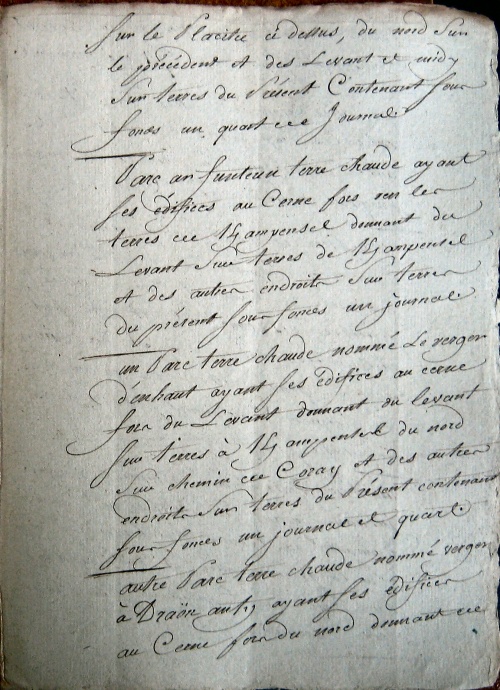 Sur le Placitre ci dessus, du nord Sur
le précédent et des Levant et midy
Sur terres du Présent Contenant sous
fonds un quart de Journal.
Parc an funteun terre chaude ayant
ses édifices au Cerne fors vers les
terres de donnant du
Levant Sur terres de
et des autres endroits Sur terres
du présent sous fonds un journal.
un Parc terre chaude nommé Le verger
d'enhaut ayant ses édifices au cerne
fors du Levant donnant du levant
sur terres à du nord
Sur chemin de Coray et des autres
endroits Sur terres du Présent contenant
sous fonds un journal et quart.
autre Parc terre chaude nommé verger
à ayant ses édifices
au Cerne fors du nord donnant de